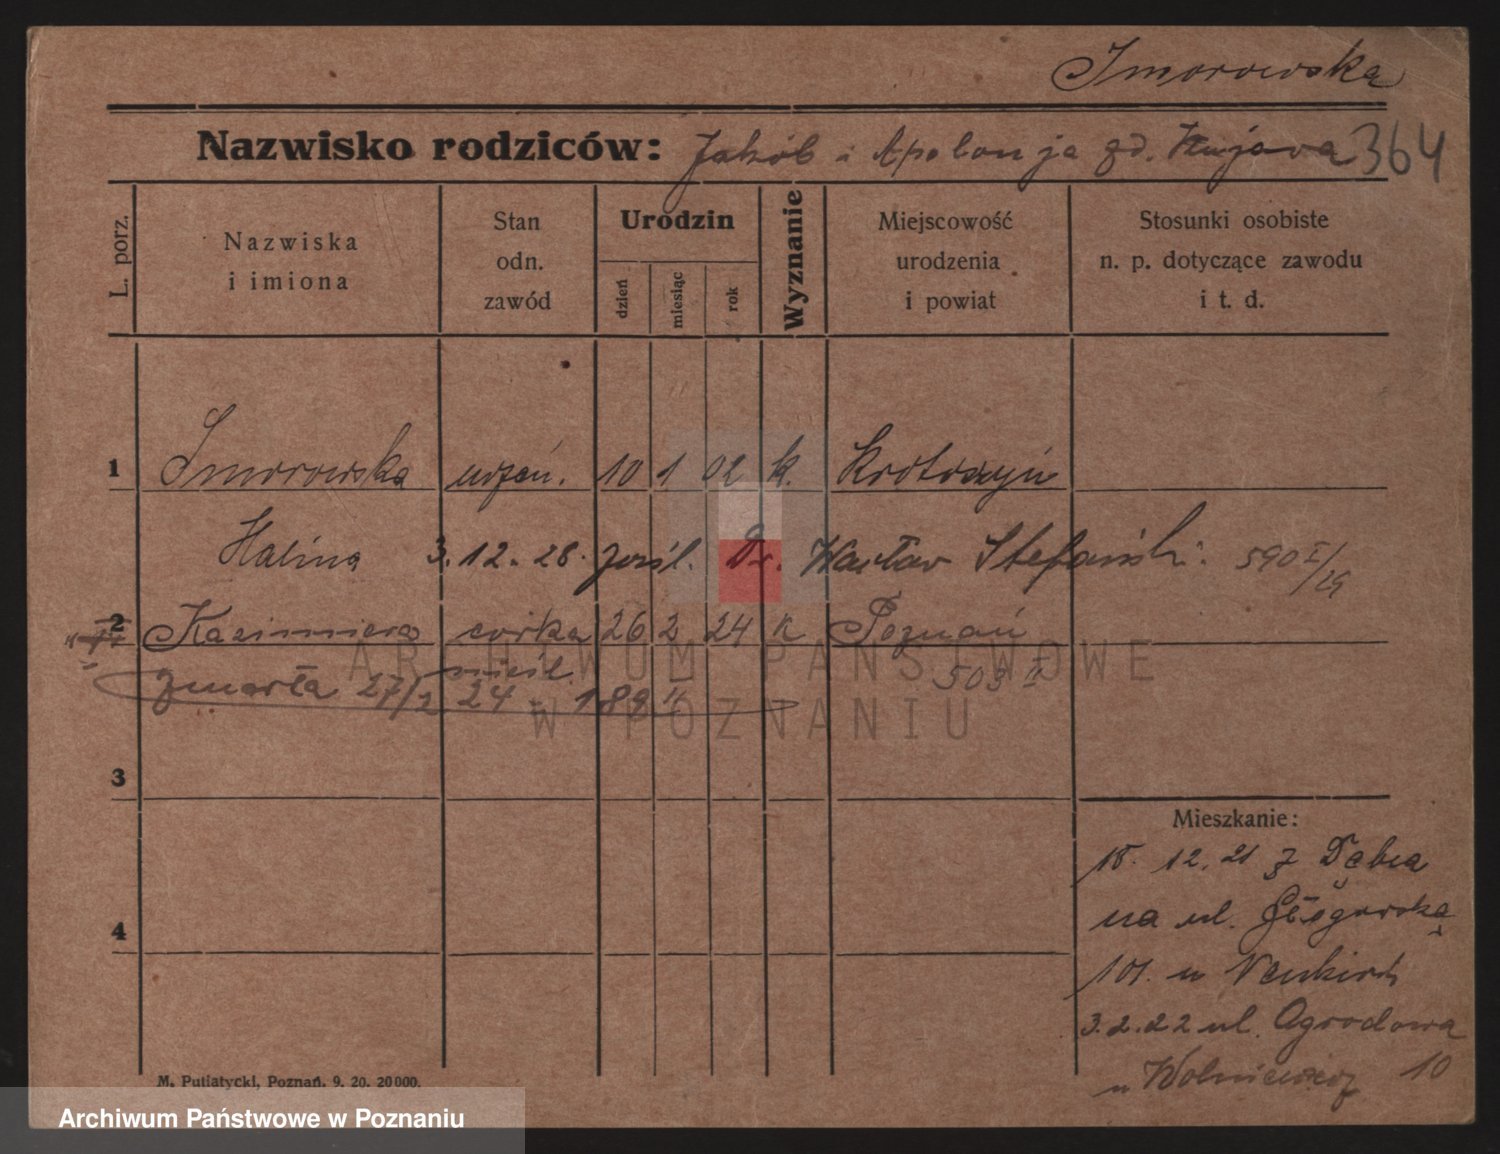 Smorowska
Nazwisko rodziców: Jakób i Apolonja 364
L. porz.
Nazwiska
i imiona
Stan
odn.
zawód
Urodzin
dzień
miesiąc
rok
Wyznanie
Miejscowość
urodzenia
i powiat
Stosunki osobiste
n. p. dotyczące zawodu
i t. d.
1 Smorowska 10 1 02 k. Krotoszyn
Halina 3. 12. 28. Dr. Wacław Stefański. 590 I/29
2 Kazimiera córka 26 2 24 k Poznań
zmarła 27/2 24 - 189 II 503 II
3
4
Mieszkanie:
18. 12. 21 z Dębca
na ul.
101. u
3. 2. 22 ul. Ogrodowa
u 10
M. Putiatycki, Poznań. 9. 20. 20000.
ARCHIWUM PAŃSTWOWE
W POZNANIU
Archiwum Państwowe w Poznaniu